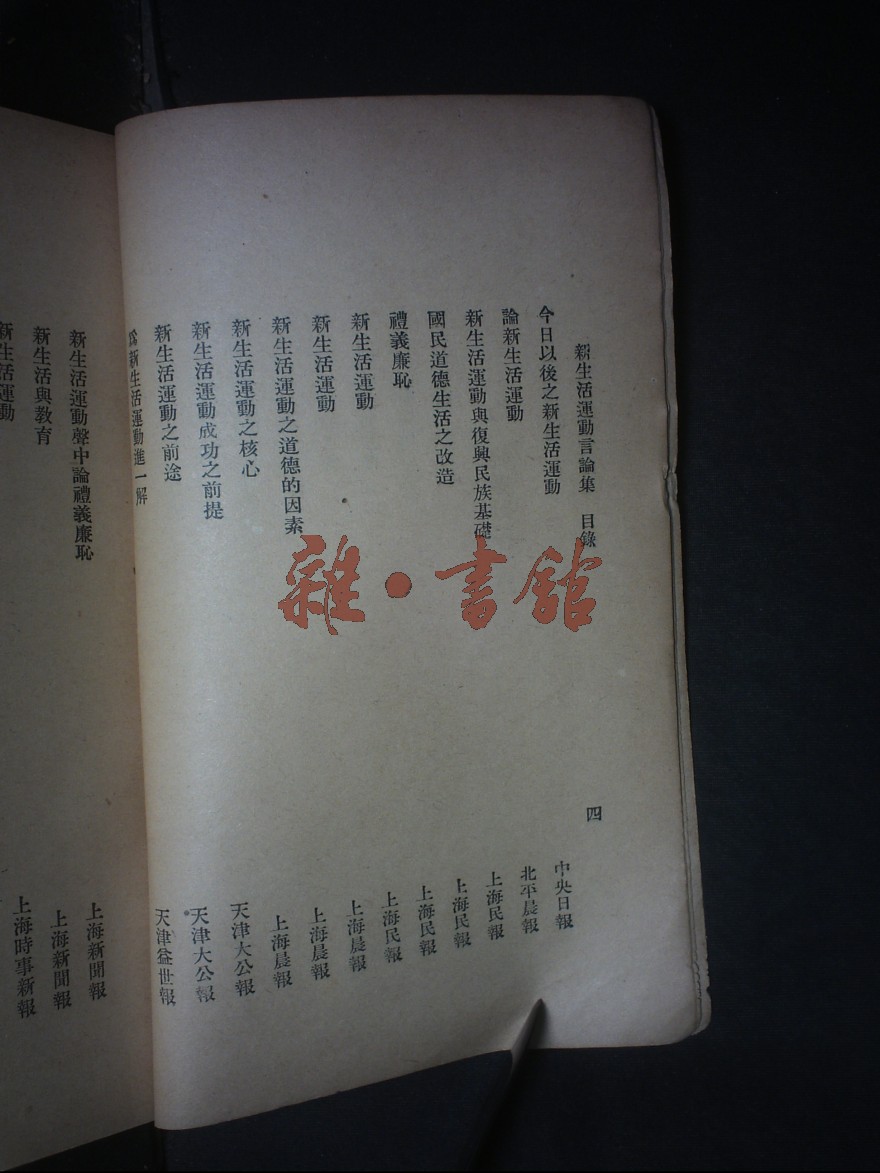 新生活運動言論集 目錄 四
今日以後之新生活運動 中央日報
論新生活運動 北平晨報
新生活運動與復興民族基礎 上海民報
國民道德生活之改造 上海民報
禮義廉恥 上海民報
新生活運動 上海民報
新生活運動 上海晨報
新生活運動之道德的因素 上海晨報
新生活運動之核心 上海晨報
新生活運動成功之前提 天津大公報
新生活運動之前途 天津大公報
爲新生活運動進一解 天津益世報
新生活運動聲中論禮義廉恥 上海新聞報
新生活與教育 上海新聞報
新生活運動 上海時事新報
雜·書館